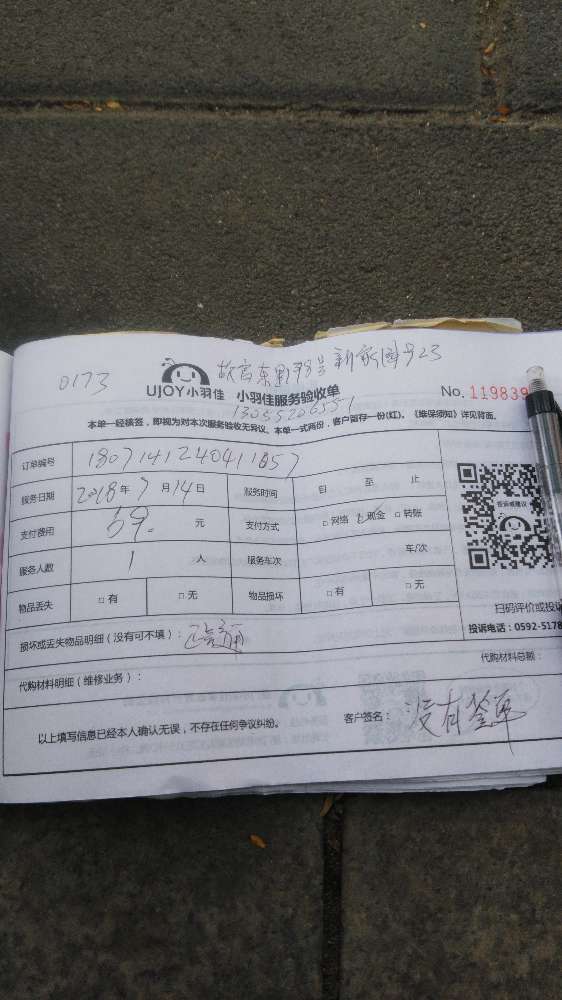 0173
UJOY小羽佳 小羽佳服务验收单 No. 119839
13055206551
本单一经核签，即视为对本次服务验收无异议。本单一式两份，客户留存一份(红)。《维保须知》详见背面。
订单编号 1807141240411057
服务日期 2018年7月14日 服务时间 自 至 止
支付费用 59. 元 支付方式 □网络 ☑现金 □转账
服务人数 1 人 服务车次 车/次
物品丢失 □有 □无 物品损坏 □有 □无
投诉或建议
扫码评价或投诉
投诉电话：0592-5178
损坏或丢失物品明细（没有可不填）：
代购材料明细（维修业务）： 代购材料总额：
以上填写信息已经本人确认无误，不存在任何争议纠纷。 客户签名： 没有签单